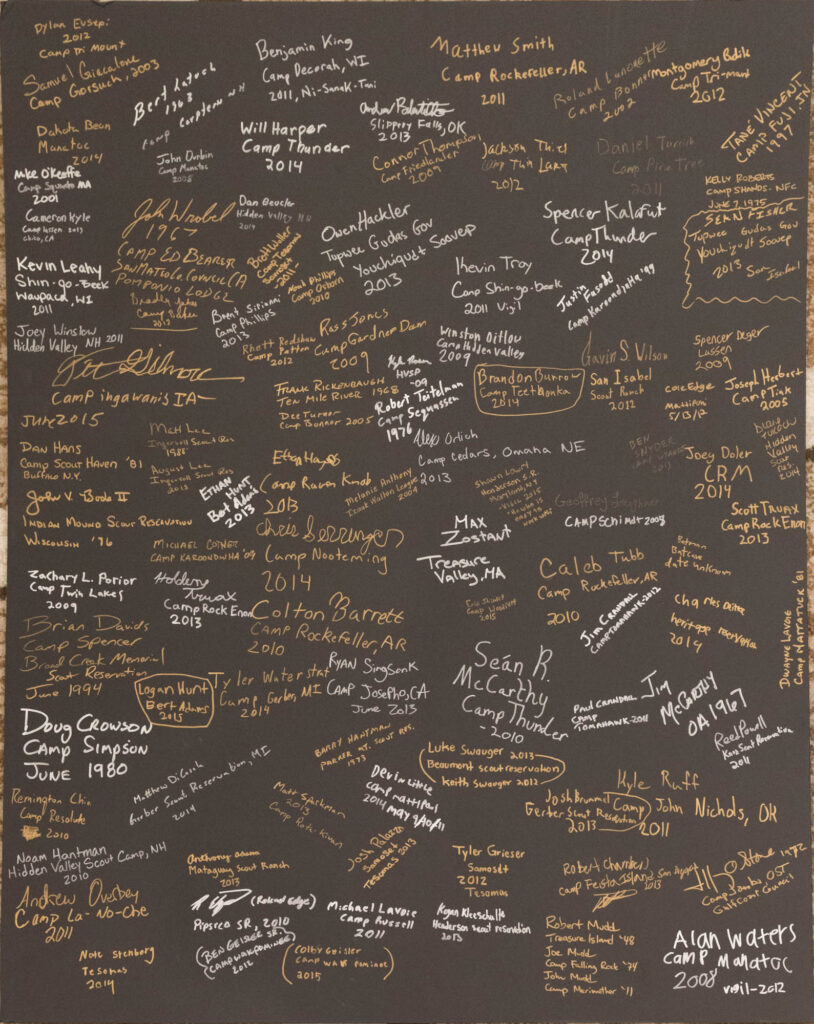 Dylan Eusepi
2012
Camp Tri Mount
Samuel Giacalone
Camp Gorsuch, 2003
Dakota Bean
Manatoc
2014
Mike O'Keeffe
Camp Squanto MA
2001
Cameron Kyle
Camp Lassen 2013
Chico, CA
Kevin Leahy
Shin-go-beek
Waupaca, WI
2011
Joey Winslow
Hidden Valley NH 2011
Bert
1963
NH
John Durbin
Camp Manatoc
2008
Benjamin King
Camp Decorah, WI
2011, Ni-Sanak-Tani
Will Harper
Camp Thunder
2014
Andrew
Slippery Falls, OK
2013
Connor Thompson
Camp Friedlander
2009
Matthew Smith
Camp Rockefeller, AR
2011
Jackson Thiel
Camp Twin Lakes
2012
Roland
Camp Bonner
2002
Montgomery
Camp Tri-mount
2012
Daniel
Camp Pine Tree
2011
TANÉ VINCENT
CAMP FUJI, JN
1997
KELLY ROBERTS
CAMP SHANDS - NFC
JUNE 7, 1975
SEAN FISHER
Tupwee Gudas Gov
Youchiquot Soovep
2013 San
Isabel
John Wrobel
1967
CAMP ED BEARER
SAN MATEO COUNCIL CA
POMPONIO LODGE
Camp
2012
Dan
Hidden Valley NH
2014
Brett Miller
Camp
2011
Noah Phillips
Camp Osborn
2010
Owen Hackler
Tupwee Gudas Gov
Youchiquot Soovep
2013
Kevin Troy
Camp Shin-go-beek
2011 Vigil
Spencer Kalafut
Camp Thunder
2014
Justin Fasoldt
Camp Karoondinha '99
Brent Sirianni
Camp Phillips
2013
Rhett Redshaw
Camp Patton
2012
Ross Jones
Camp Gardner Dam
2009
Winston Ditlow
Camp Hidden Valley
2009
Kyle
HVSR
-09
Gavin S Wilson
San Isabel
Scout Ranch
2012
Spencer Deger
Lassen
2009
Cole Edge
5/13/12
Joseph Herbert
Camp Tink
2005
Joe Gilmore
Camp ingawanis IA
June 2015
FRANK RICKENBAUGH
TEN MILE RIVER 1968
Dee Turner
Camp Bonner 2005
Robert Teitelman
Camp Sequassen
1976
Brandon Burrow
Camp Teetonka
2014
Hidden
Valley
Scout
Res.
2014
Dan Hans
Camp Scout Haven '81
Buffalo N.Y.
Matt Lee
Ingersoll Scout Res
1988
August Lee
Ingersoll Scout Res
2013
John V. Bode II
Indian Mound Scout Reservation
Wisconsin '76
Ethan Hunt
Bert Adams
2013
Ethan Hayes
Camp Raven Knob
2013
Melanie Anthony
Izaak Walton League
2009
Alex Ortich
Camp Cedars, Omaha NE
2013
Shawn Lowry
Henderson S.R.
Maryland NY
BEN
SNYDER
Joey Doler
CRM
2014
MICHAEL COTNER
CAMP KAROONDINHA '09
Chris Serringer
Camp Nooteming
2014
Max
Zostant
Treasure
Valley, MA
Geoffrey
CAMP Schmidt 2008
Scott Truax
Camp Rock Enon
2013
Batman
Batcave
date unknown
Zachary L. Porior
Camp Twin Lakes
2009
Holden
Truax
Camp Rock Enon
2013
Colton Barrett
Camp Rockefeller, AR
2010
Caleb Tubb
Camp Rockefeller, AR
2010
Jim Crandall
Camp Tomahawk-2012
Charles
heritage reservation
2014
DWAYNE LAVOIE
CAMP MATTATUCK '81
Brian Davids
Camp Spencer
Broad Creek Memorial
Scout Reservation
June 1994
Logan Hunt
Bert Adams
2015
Tyler Waterstrat
Camp Gerber, MI
2014
RYAN Singsank
CAMP Josepho, CA
June 2013
Seán R.
McCarthy
Camp Thunder
-2010
Paul Crandall
Camp
Tomahawk-2011
Jim
McCarthy
OA 1967
Reed Powell
Scout Reservation
2011
Doug Crowson
Camp Simpson
June 1980
Matthew DiCarlo
Gerber Scout Reservation, MI
2014
BARRY HANTMAN
PARKER MT. SCOUT RES.
1973
Luke Swauger 2013
Beaumont scout reservation
Keith Swauger 2012
Remington Chin
Camp Resolute
2010
Matt Sparkman
2013
Camp Rock Enon
Devin Little
Camp
2014 May
Josh Brummel
Gerber Scout Reservation
2013
Kyle Ruff
Camp John Nichols, OK
2011
Noam Hantman
Hidden Valley Scout Camp, NH
2010
Anthony Adams
Mataguay Scout Ranch
2013
Josh Palazzo
Samosdt
Tesomas 2013
Tyler Grieser
Samosdt
2012
Tesomas
Robert Chambon
Camp Fiesta Island San Diego
2013
Stone 1972
Gulf Coast Council
Andrew Overbey
Camp La-No-Che
2011
(Roland Edge)
Pipsico SR, 2010
(Ben Geisler SR.
Camp Wakpominee
2012)
Michael Lavoie
Camp Russell
2011
Rogan Kleeschulte
Henderson scout reservation
2013
Nate Stenborg
Tesomas
2014
(Colby Geisler
Camp Wakpominee
2015)
Robert Mudd
Treasure Island '48
Joe Mudd
Camp Falling Rock '74
John Mudd
Camp Meriwether '11
Alan Waters
Camp Manatoc
2008
vigil-2012